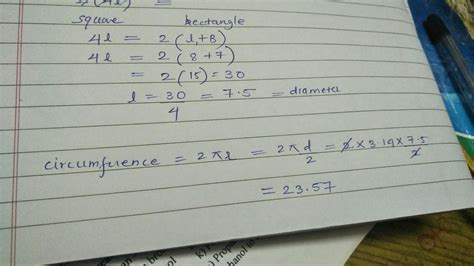 square rectangle
4l = 2(l,+B)
4l = 2(8+7)
= 2(15) = 30
l = 30/4 = 7.5 = diameter
circumfuence = 2πr = 2πd/2 = 2×3.14×7.5/2
= 23.57